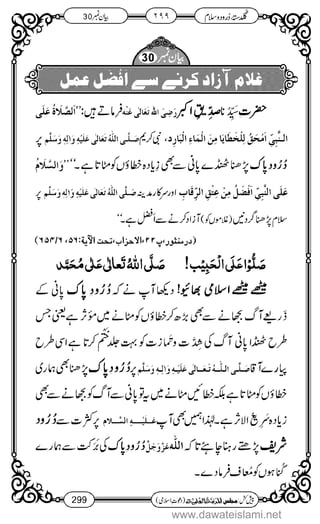 بیان نمبر 30
۲۹۹
گلدستہ درود و سلام
بیان نمبر 30
غلام آزاد کرنے سے افضل عمل
حضرت سیدنا صدیق اکبر رضی اللہ تعالی عنہ فرماتے ہیں: ’’اَلصَّلَاةُ عَلَی
النَّبِیِّ اَمْحَقُ لِلْخَطَایَا مِنَ الْمَاءِ الْبَارِدِ، نبی کریم صَلَّی اللہُ تَعَالٰی عَلَیْہِ وَاٰلِہٖ وَسَلَّم پر
درود پاک پڑھنا ٹھنڈے پانی سے بھی زیادہ خطاؤں کو مٹاتا ہے۔‘‘ ’’وَالسَّلَامُ
عَلَی النَّبِیِّ اَفْضَلُ مِنْ عِتْقِ الرِّقَابِ اور سرکار مدینہ صَلَّی اللہُ تَعَالٰی عَلَیْہِ وَاٰلِہٖ وَسَلَّم پر
سلام پڑھنا گردنیں (غلاموں کو) آزاد کرنے سے افضل ہے۔‘‘
(درمنثور، پ ۲۲، الاحزاب، تحت الآیة: ۵۶، ۶/ ۶۵۴)
صَلُّوْا عَلَی الْحَبِیْب! صَلَّی اللہُ تَعَالٰی عَلٰی مُحَمَّد
میٹھے میٹھے اسلامی بھائیو! دیکھا آپ نے کہ درود پاک پانی کے
ذریعے آگ بجھانے سے بھی بڑھ کر خطاؤں کو مٹانے میں مؤثر ہے یعنی جس
طرح ٹھنڈا پانی آگ کی شدت و تمازت کو بہت جلد ختم کردیتا ہے اسی طرح
پیارے آقا صَلَّی اللہُ تَعَالٰی عَلَیْہِ وَاٰلِہٖ وَسَلَّم پر درود پاک پڑھنا بھی ہماری
خطاؤں کو مٹاتا ہے بلکہ خطائیں مٹانے میں تو یہ پانی سے آگ کو بجھانے سے بھی
زیادہ سریع الاثر ہے۔ لہٰذا ہمیں بھی آپ عَلَیْہِ السَّلَام پر کثرت سے درود
شریف پڑھتے رہنا چاہئے تاکہ اللہ عَزَّوَجَلَّ درود پاک کی برکت سے ہمارے
گناہوں کو معاف فرمادے۔
299
www.dawateislami.net